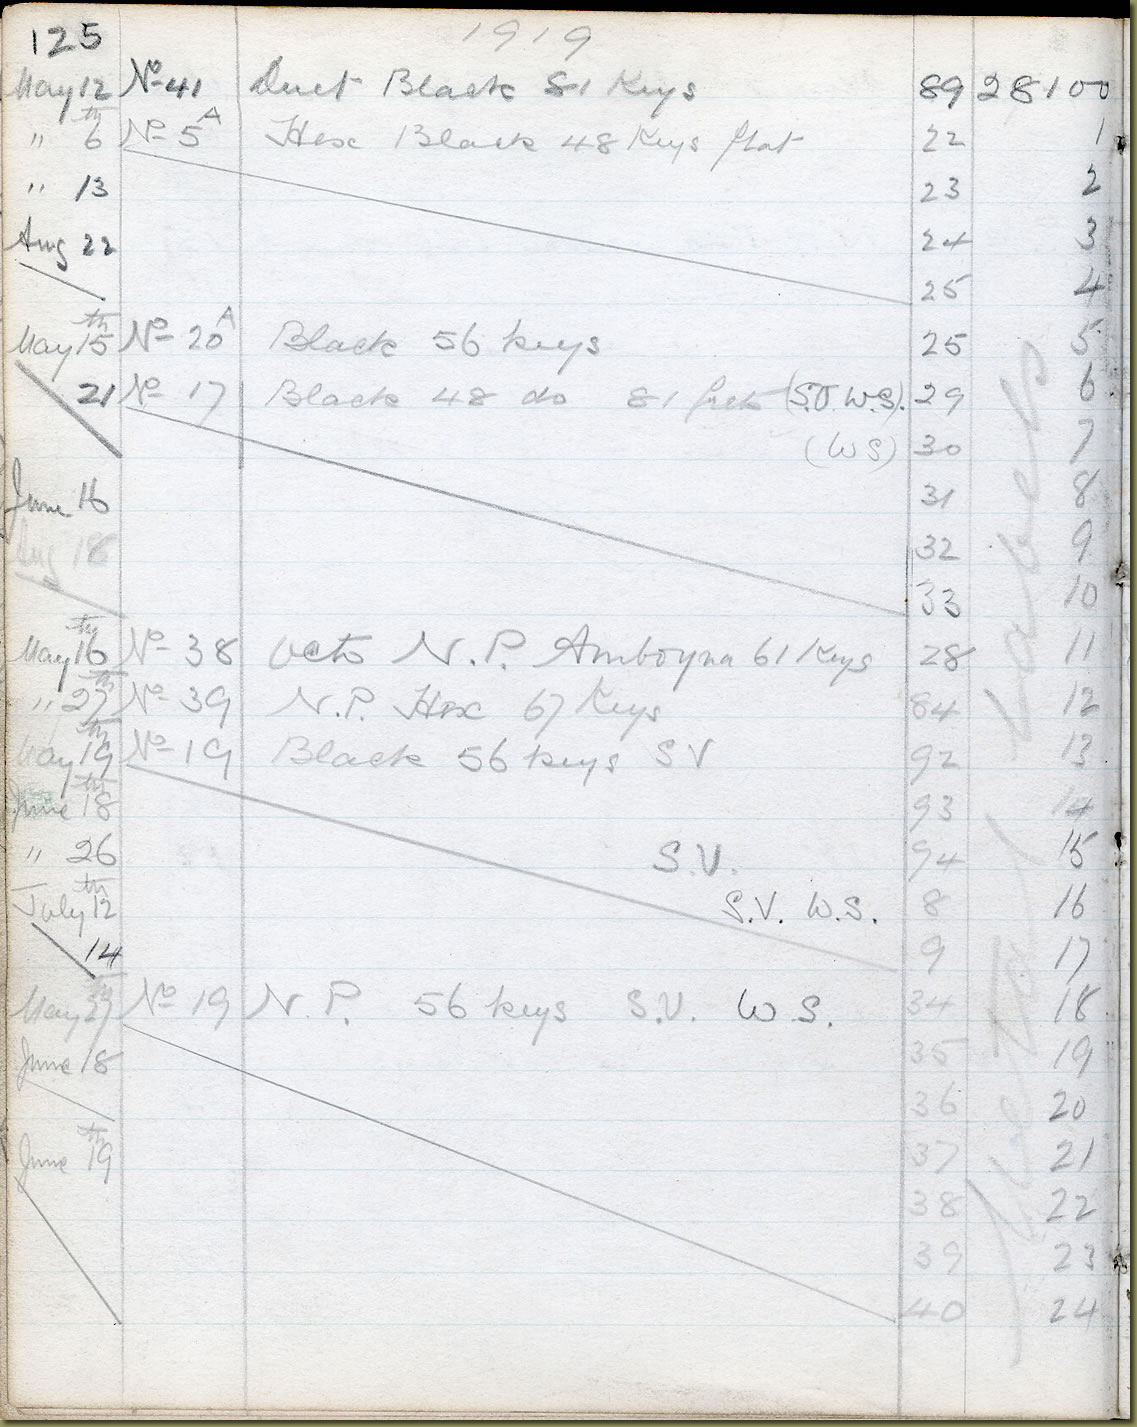 125 1919
May 12 No 41 Duet Black 81 Keys 89 28100
" 6th No 5A Hex Black 48 Keys flat 22 1
" 13 23 2
Aug 22 24 3
25 4
May 15th No 20A Black 56 keys 25 5
21 No 17 Black 48 do 81 (S.V. W.S). 29 6
(WS) 30 7
June 16 31 8
Aug 18 32 9
33 10
May 16th No 38 Octo N.P. Amboyna 61 Keys 28 11
" 27th No 39 N.P. Hex 67 Keys 84 12
May 19th No 19 Black 56 keys SV 92 13
June 18th 93 14
" 26 S.V. 94 15
July 12th S.V. W.S. 8 16
14 9 17
May 27th No 19 N.P. 56 keys S.V. W.S. 34 18
June 18 35 19
36 20
June 19th 37 21
38 22
39 23
40 24
labels